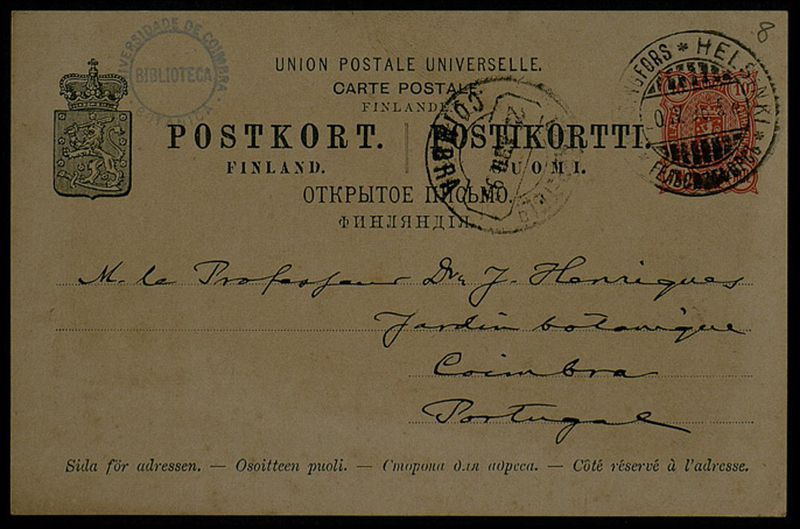 8
UNIVERSIDADE DE COIMBRA
BIBLIOTECA
BOTANICA
UNION POSTALE UNIVERSELLE.
CARTE POSTALE
FINLANDE
POSTKORT. POSTIKORTTI.
FINLAND. SUOMI.
ОТКРЫТОЕ ПИСЬМО.
ФИНЛЯНДІЯ.
HELSINGFORS * HELSINKI *
COIMBRA
M. le Professeur Dr. J. Henriques
Jardin botanique
Coimbra
Portugal
Sida för adressen. — Osoitteen puoli. — Сторона для адреса. — Côté réservé à l'adresse.